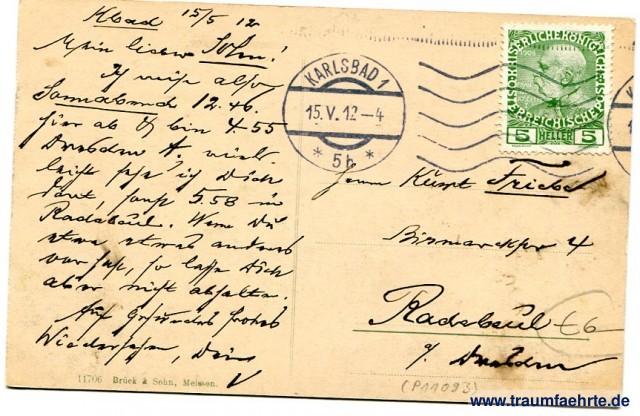 Kbad 15/5 12
Mein lieber Sohn!
Ich reise also
Sonnabend 12.46.
hier ab & bin 4.55
Dresden A. viel-
leicht sehe ich Dich
dort, sonst 5.58 in
Radebeul. Wenn Du
etwa etwas anderes
vor hast, so lasse Dich
aber nicht abhalten.
Auf gesundes frohes
Wiedersehen, Dein
V
11706 Brück & Sohn, Meissen.
KARLSBAD 1
15.V.12-4
* 5b *
KAIS. KÖN.
ÖSTERREICHISCHE
5 HELLER 5
Herrn Kurt
Bismarckstr 4
Radebeul
b/ Dresden
66
(P11093)
www.traumfaehrte.de